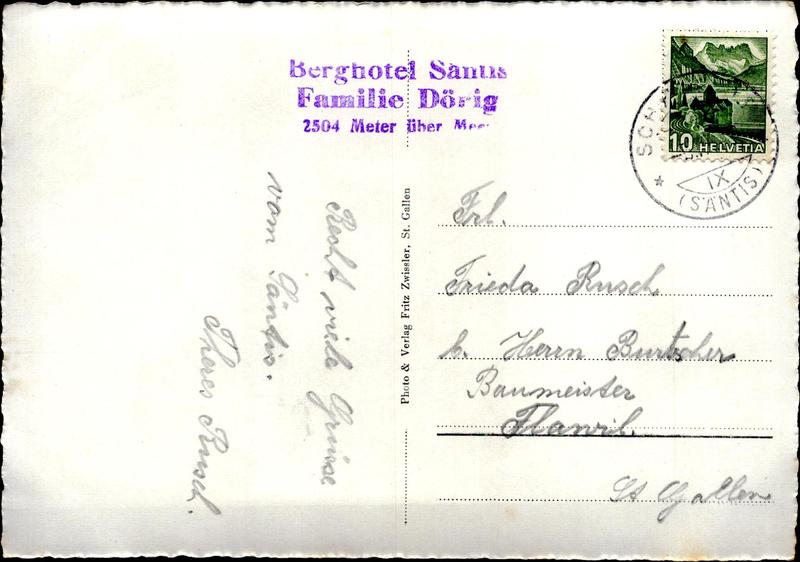 Berghotel Säntis
Familie Dörig
2504 Meter über Meer
Recht viele Grüsse
vom Säntis.
Theres Rusch.
Photo & Verlag Fritz Zwissler, St. Gallen
10 HELVETIA
IX
(SÄNTIS)
Frl.
Frieda Rusch
b. Herrn Burtscher
Baumeister
Flawil.
St Gallen